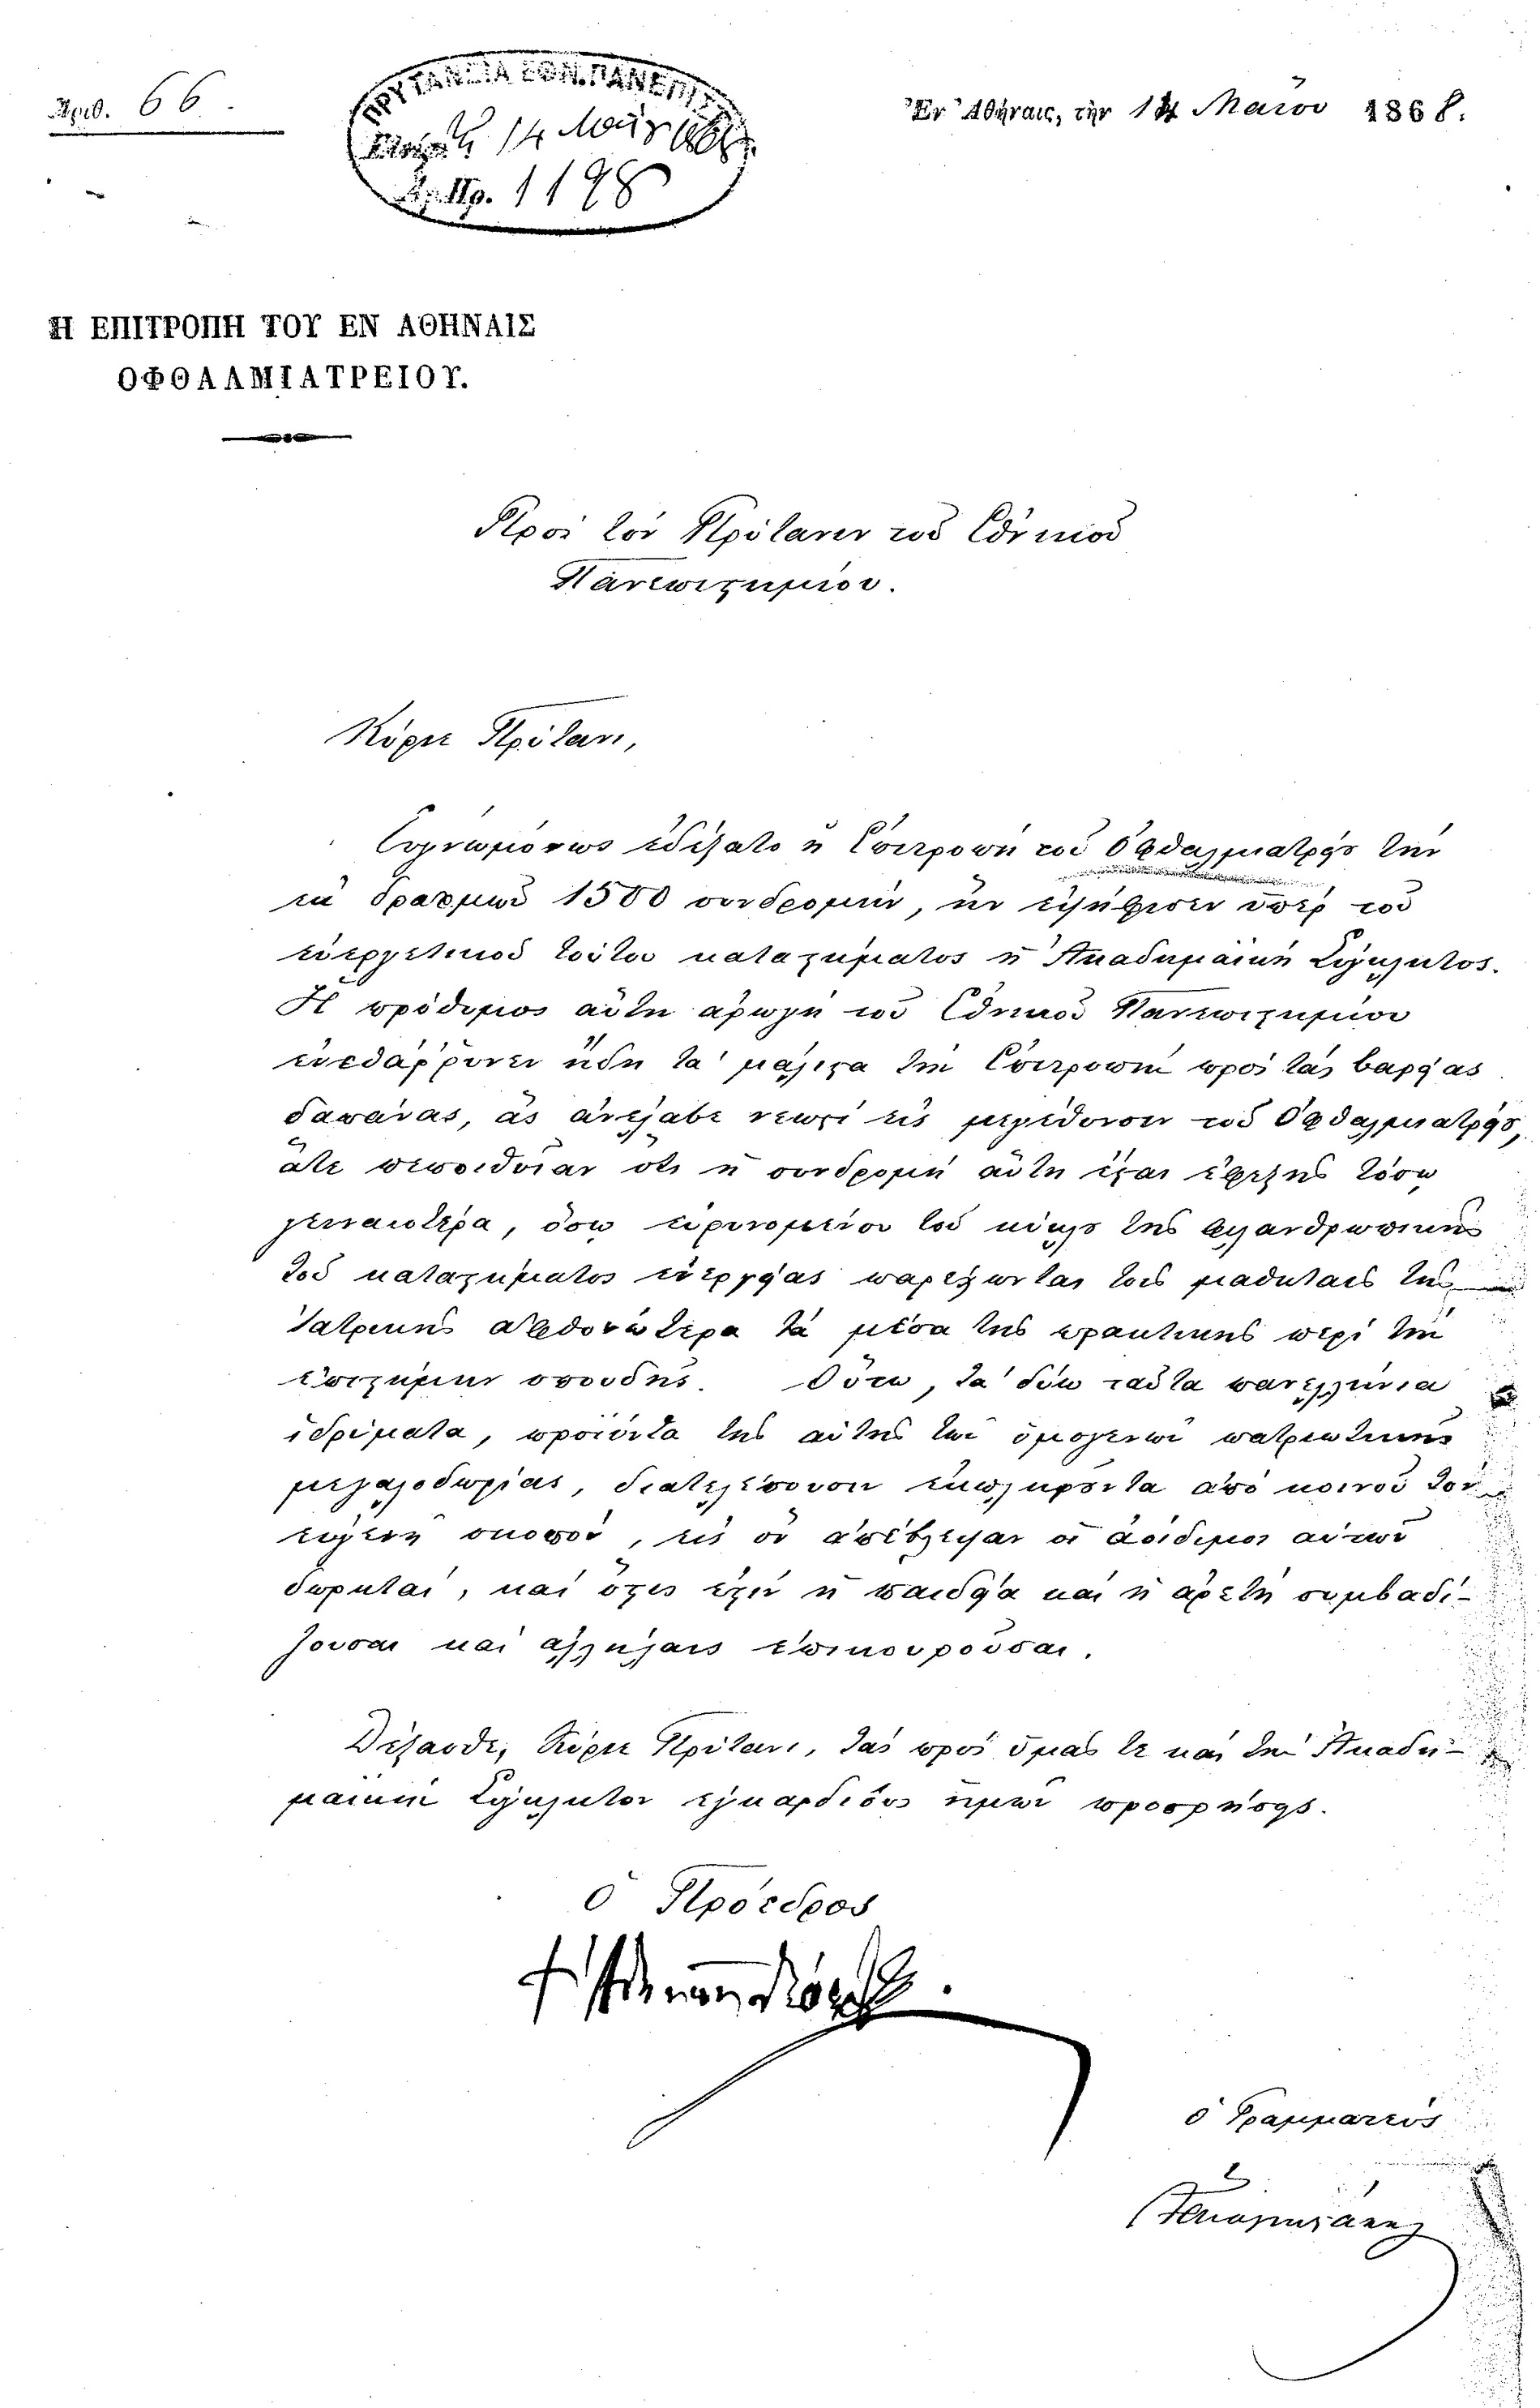 Ἀριθ. 66.
ΠΡΥΤΑΝΕΙΑ ΕΘΝ. ΠΑΝΕΠΙΣ
14 Μαΐου 1868
Ἀρ. Πρ. 1198
Ἐν Ἀθήναις, τὴν 14 Μαΐου 1868.
Η ΕΠΙΤΡΟΠΗ ΤΟΥ ΕΝ ΑΘΗΝΑΙΣ
ΟΦΘΑΛΜΙΑΤΡΕΙΟΥ.
Πρὸς τὸν Πρύτανιν τοῦ Ἐθνικοῦ
Πανεπιστημίου.
Κύριε Πρύτανι,
Εὐγνωμόνως ἐδέξατο ἡ Ἐπιτροπὴ τοῦ Ὀφθαλμιατρείου τὴν
ἐκ δραχμῶν 1500 συνδρομήν, ἣν ἐψήφισεν ὑπὲρ τοῦ
εὐεργετικοῦ τούτου καταστήματος ἡ Ἀκαδημαϊκὴ Σύγκλητος.
Ἡ πρόθυμος αὕτη ἀρωγὴ τοῦ Ἐθνικοῦ Πανεπιστημίου
ἐπεθάρρυνεν ἤδη τὰ μάλιστα τὴν Ἐπιτροπὴν πρὸς τὰς βαρείας
δαπάνας, ἃς ἀνέλαβε νεωστὶ εἰς μεγέθυνσιν τοῦ Ὀφθαλμιατρείου,
ἅτε πεποιθυῖαν ὅτι ἡ συνδρομὴ αὕτη ἔσται ἐφεξῆς τόσῳ
γενναιοτέρα, ὅσῳ εὐρυνομένου τοῦ κύκλου τῆς φιλανθρωπικῆς
τοῦ καταστήματος εὐεργείας παρέχωνται τοῖς μαθηταῖς τῆς
Ἰατρικῆς ἀφθονώτερα τὰ μέσα τῆς πρακτικῆς περὶ τὴν
ἐπιστήμην σπουδῆς. Οὕτω, τὰ δύο ταῦτα πανελλήνια
ἱδρύματα, προϊόντα τῆς αὐτῆς τῶν ὁμογενῶν πατριωτικῆς
μεγαλοδωρίας, διατελέσουσιν ἐκπληροῦντα ἀπὸ κοινοῦ τὸν
εὐγενῆ σκοπόν, εἰς ὃν ἀπέβλεψαν οἱ ἀοίδιμοι αὐτῶν
δωρηταί, καὶ ὅστις ἐστὶν ἡ παιδεία καὶ ἡ ἀρετὴ συμβαδί-
ζουσαι καὶ ἀλλήλαις ἐπικουροῦσαι.
Δέξασθε, Κύριε Πρύτανι, τὰς πρὸς ὑμᾶς τε καὶ τὴν Ἀκαδη-
μαϊκὴν Σύγκλητον ἐγκαρδίους ἡμῶν προσρήσεις.
Ὁ Πρόεδρος
ὁ Γραμματεὺς